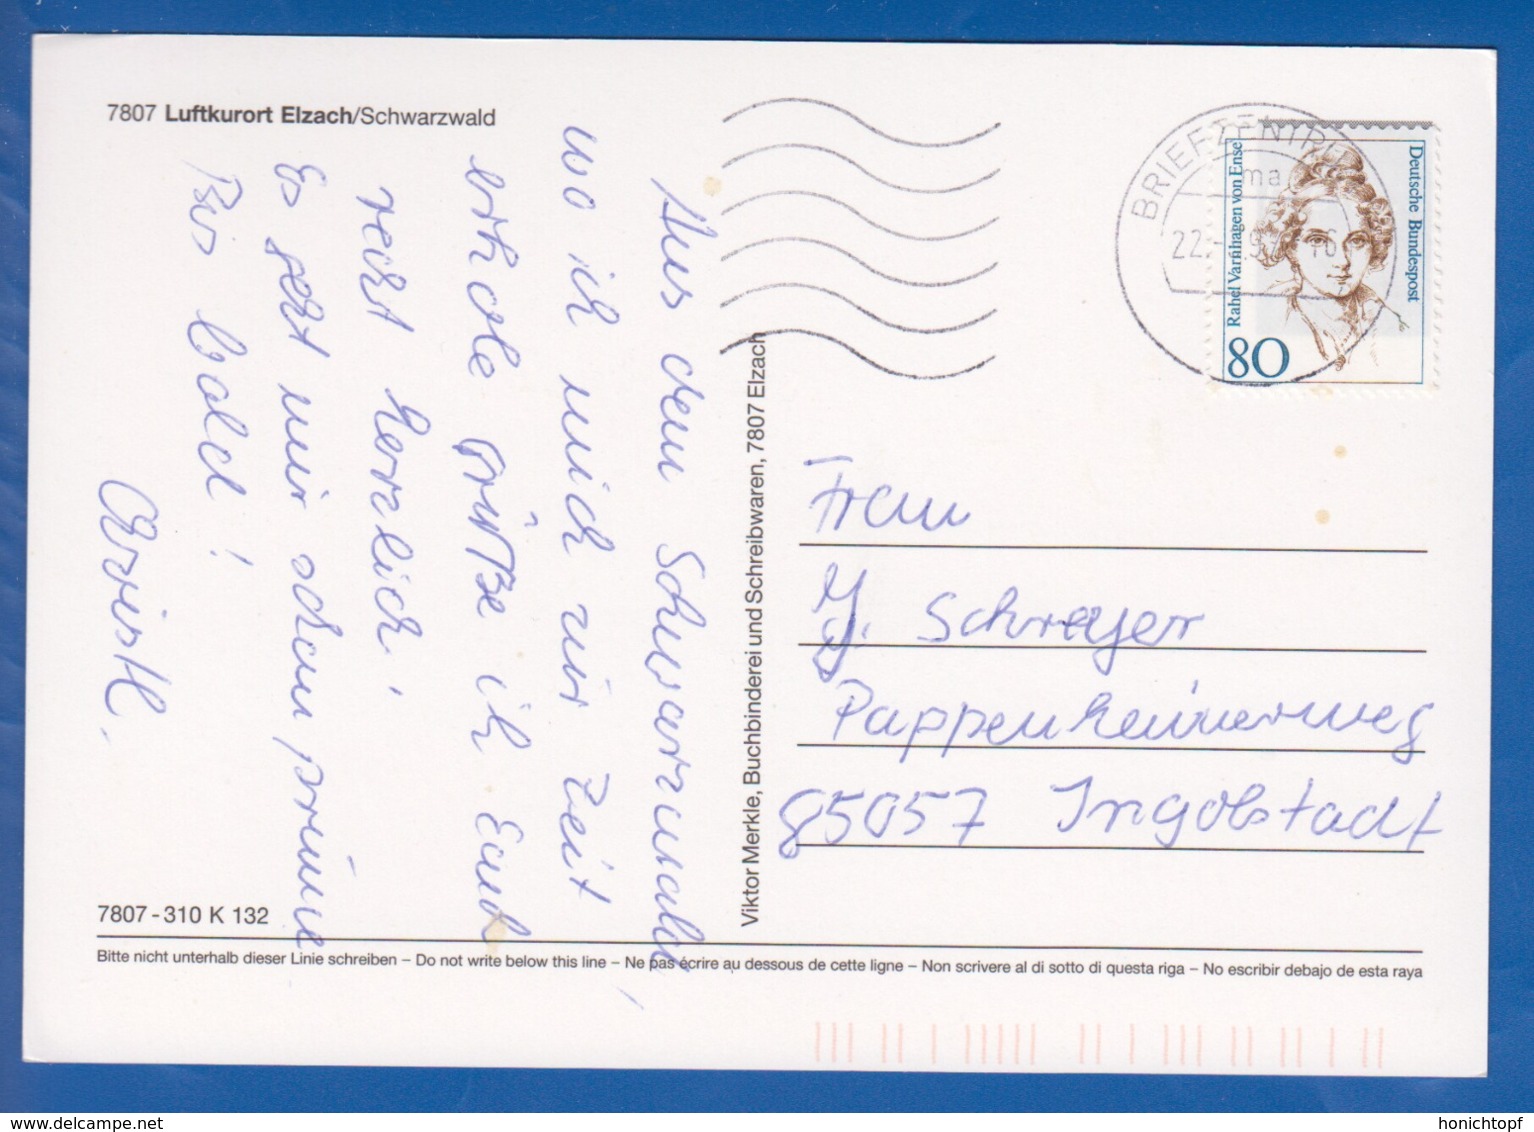 7807 Luftkurort Elzach/Schwarzwald
Aus dem Schwarzwald,
wo ich mich zur Zeit
erhole grüße ich Euch
recht herzlich!
Es geht mir schon prima
Bis bald!
7807 - 310 K 132
Viktor Merkle, Buchbinderei und Schreibwaren, 7807 Elzach
BRIEFZENTRUM
22.
Deutsche Bundespost
Rahel Varnhagen von Ense
80
Frau
Schreyer
Pappenheimerweg
85057 Ingolstadt
Bitte nicht unterhalb dieser Linie schreiben – Do not write below this line – Ne pas écrire au dessous de cette ligne – Non scrivere al di sotto di questa riga – No escribir debajo de esta raya
www.delcampe.net
honichtopf